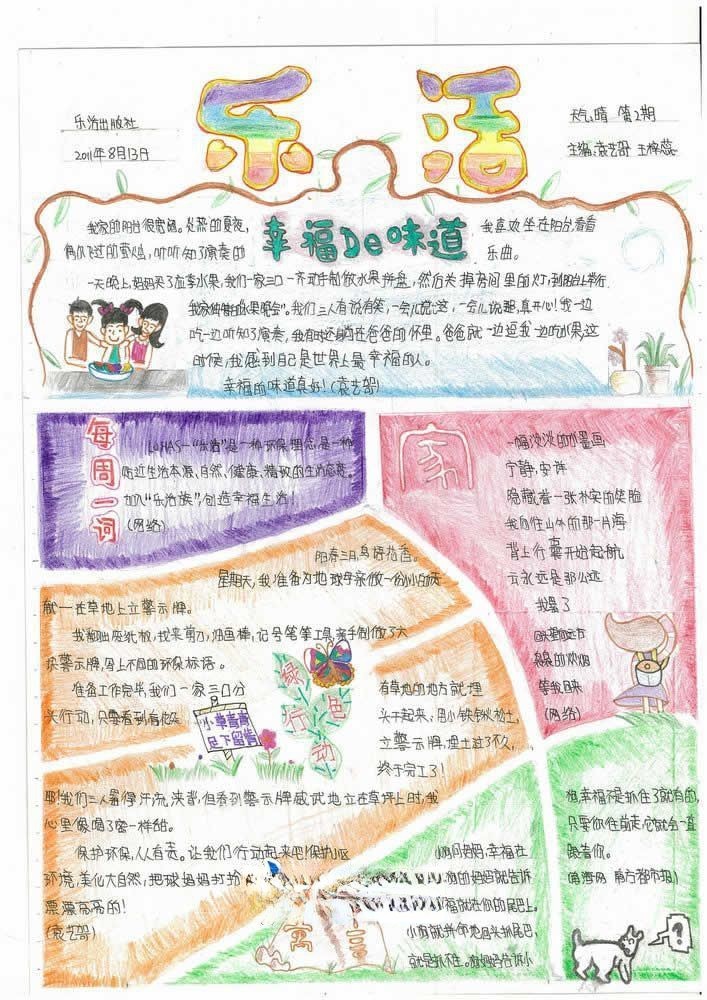 乐活
乐活出版社
2011年8月13日
天气:晴 第2期
主编:袁艺
幸福De味道
我家的阳台很宽阔。炎热的夏夜,
我喜欢坐在阳台看看
偶尔飞过的萤火虫,听听知了演奏的
乐曲。
一天晚上,妈妈买了应季水果,我们一家三口一齐动手制做水果拼盘,然后关掉房间里的灯,到阳台上举行
我家独特的“水果晚会”。我们三人有说有笑,一会儿说这,一会儿说那,真开心!我一边
吃一边听知了演奏,我有时还躺在爸爸的怀里。爸爸就一边逗我一边吃水果,这
时候,我感到自己是世界上最幸福的人。
幸福的味道真好!(袁艺
每周一词
LOHAS—“乐活”是一种环保理念,是一种
贴近生活本源、自然、健康、精致的生活态度。
加入“乐活族”创造幸福生活!
(网络)
家
一幅淡淡的水墨画
宁静,安详
隐藏着一张朴实的笑脸
我向往山外的那一片海
背上行囊开始起航
方永远是那么远
我累了
袅袅的炊烟
等我回来
(网络)
阳春三月,鸟语花香。
星期天,我准备为地球母亲做一份小小的
献—在草地上立警示牌。
我翻出废纸板,找来剪刀、油画棒,记号笔等工具,亲手制做了大
块警示牌,写上不同的环保标语。
准备工作完毕,我们一家三口分
头行动,只要看到有
有草地的地方就埋
头干起来,用小铁锹松土,
立警示牌,埋土过了不久,
终于完工了!
绿色行动
小草青青
足下留情
耶!我们三人累得汗流浃背,但看到警示牌威武地立在草坪上时,我
心里像喝了蜜一样甜。
保护环保,人人有责。让我们行动起来吧!保护
环境,美化大自然,把球妈妈打扮
漂漂亮亮的!
(袁艺
寓言
问妈妈,幸福在
的妈妈就告诉
福就在你的尾巴上。
小狗就拼命地回头抓尾巴,
就是抓不住。狗妈妈告诉小
幸福不是抓住了就有的,
只要你往前走,它就会一直
跟着你。
南方都市报)
?